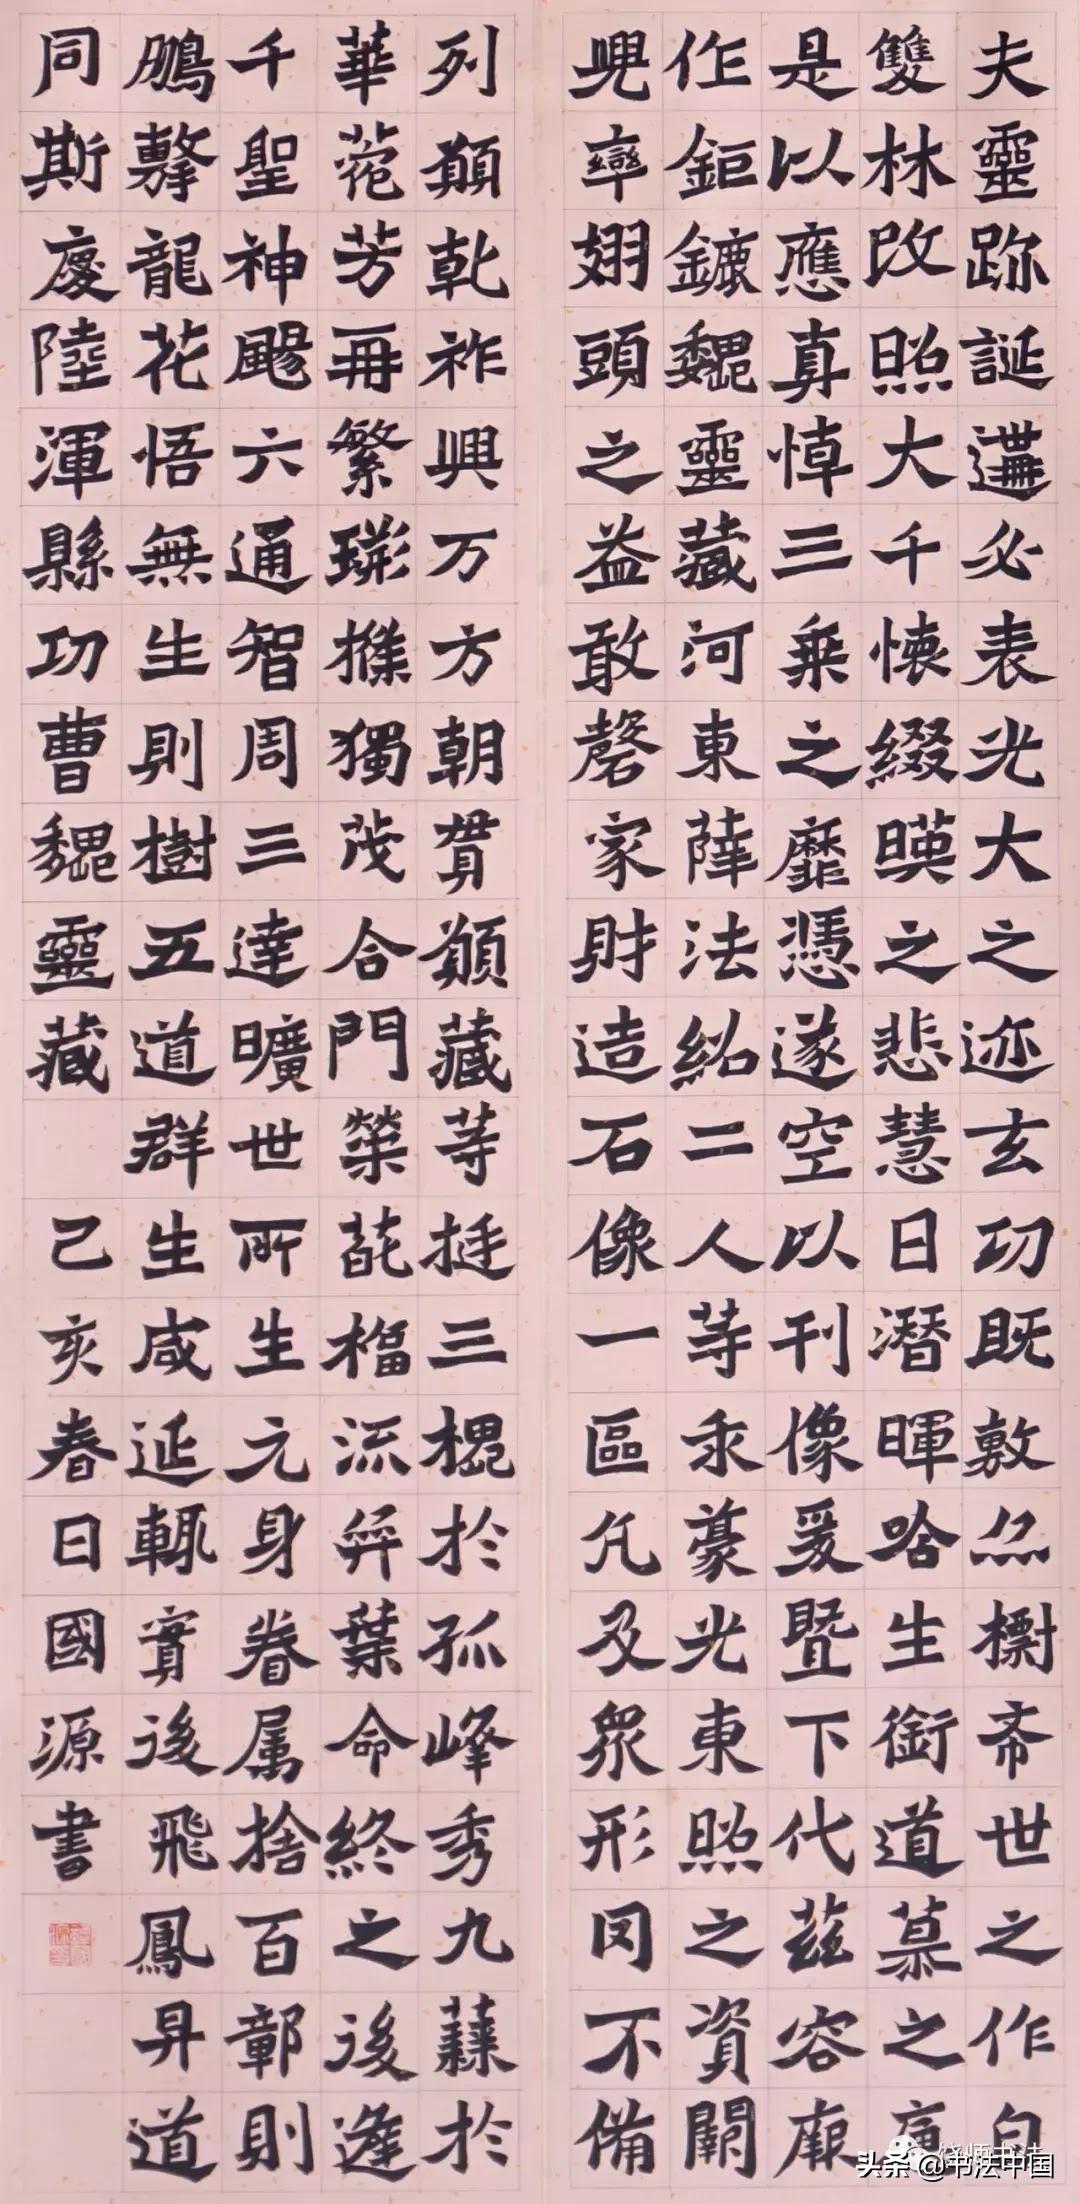 夫靈跡誕遘必表光大之迹玄功既敷亦標希世之作自
雙林改照大千懷綴暎之悲慧日潛暉唅生銜道慕之痛
是以應真悼三乘之靡憑遂空以刊像爰暨下代茲容厥
作鉅鏕魏靈藏河東薛法紹二人等求豪光東照之資闕
兜率翅頭之益敢罄家財造石像一區凡及眾形罔不備
列願乾祚興万方朝貫願藏等挺三槐於孤峰秀九蕀於
華菀芳再繁璨㯟獨茂合門榮葩福流弈葉命終之後逢
千聖神颺六通智周三達曠世所生元身眷属捨百鄣則
鵬擊龍花悟無生則樹五道群生咸延輒實後飛鳳昇道
同斯慶陸渾縣功曹魏靈藏 己亥春日國源書
头条 @书法中国